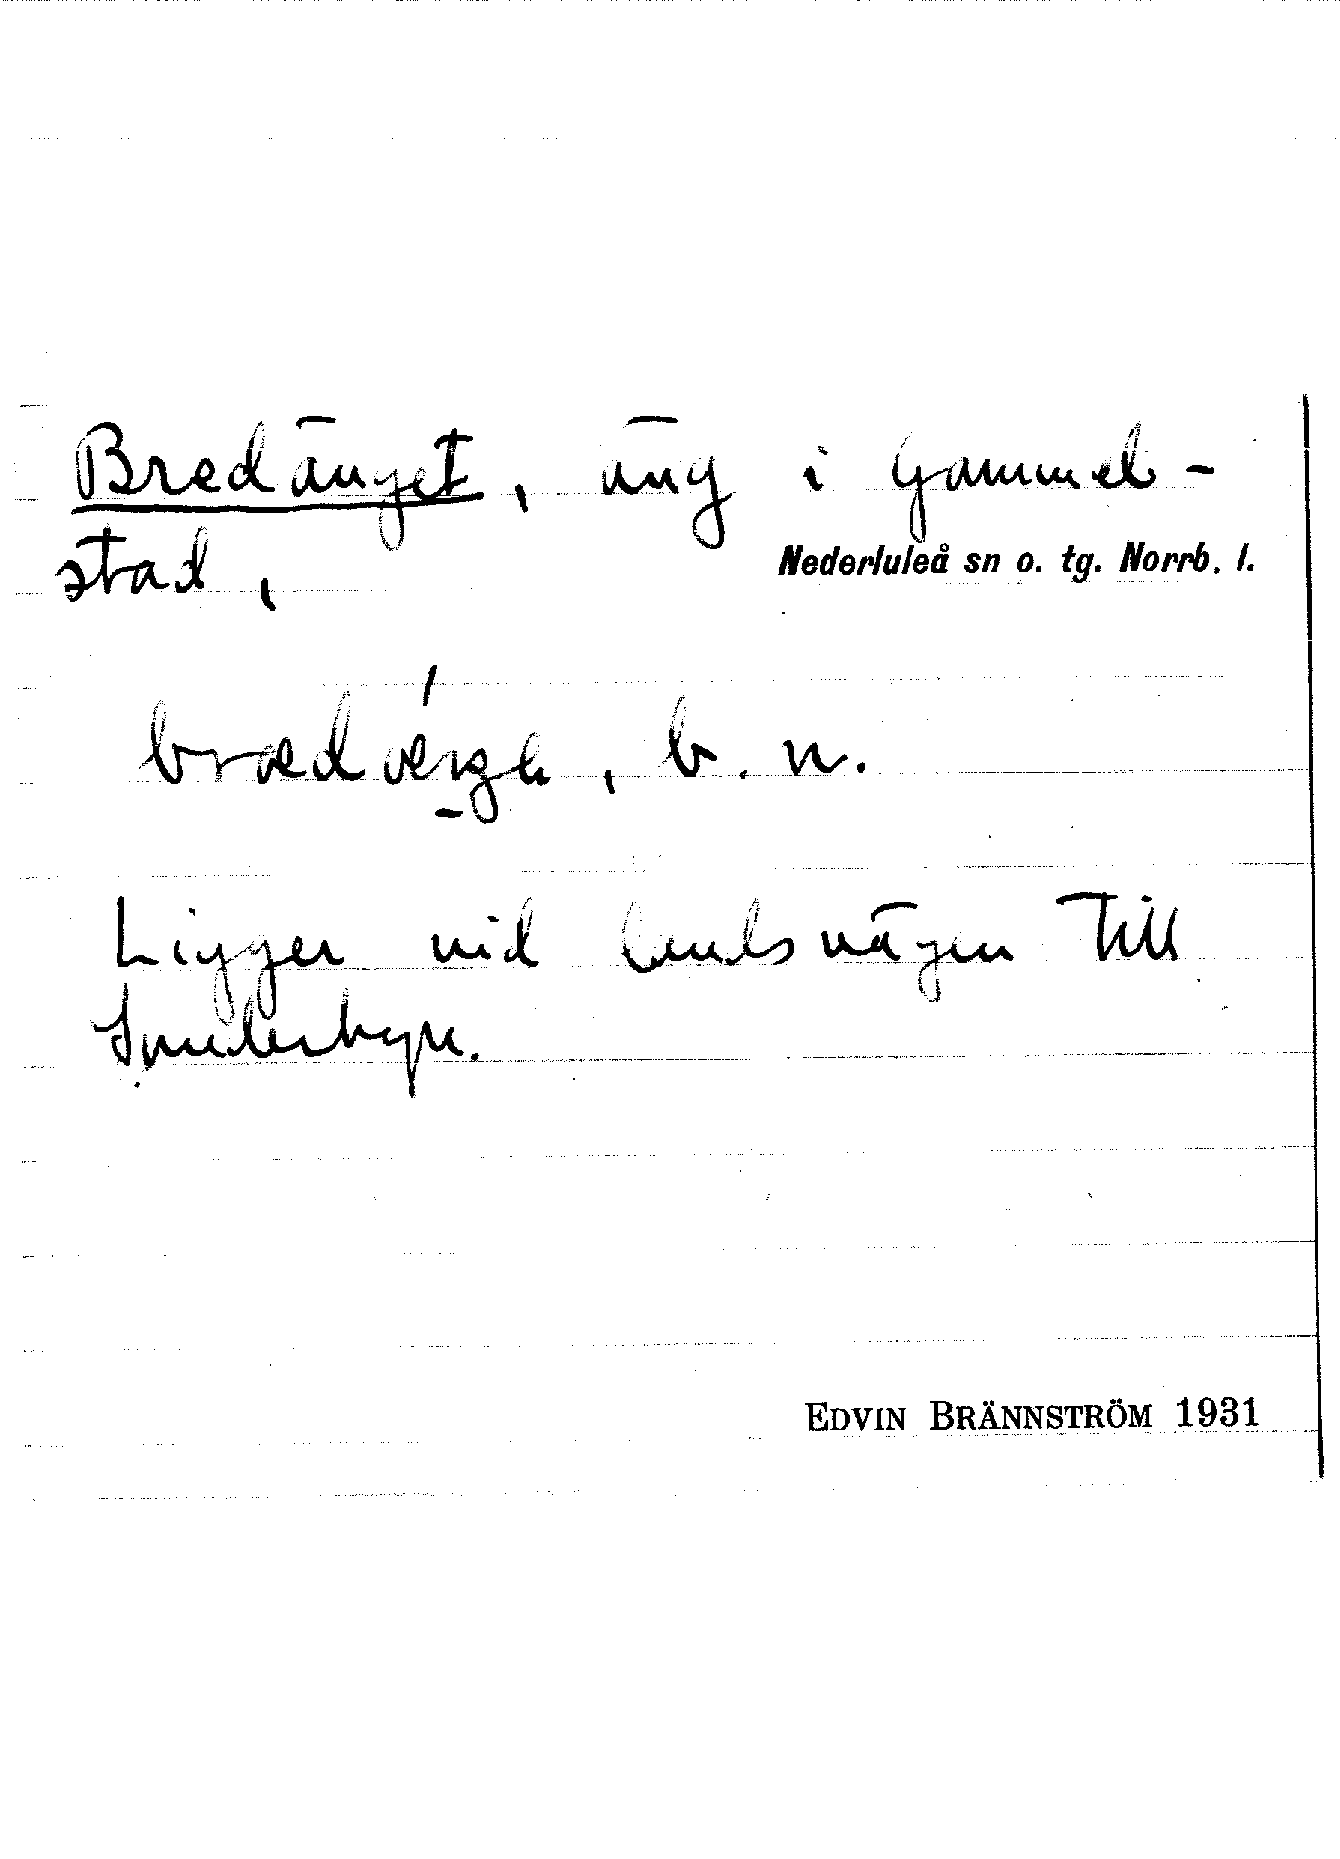 Bredänget, äng i Gammel-
stad,
Nederluleå sn o. tg. Norrb. l.
b. n.
Ligger vid landsvägen till
Sunderbyn.
EDVIN BRÄNNSTRÖM 1931